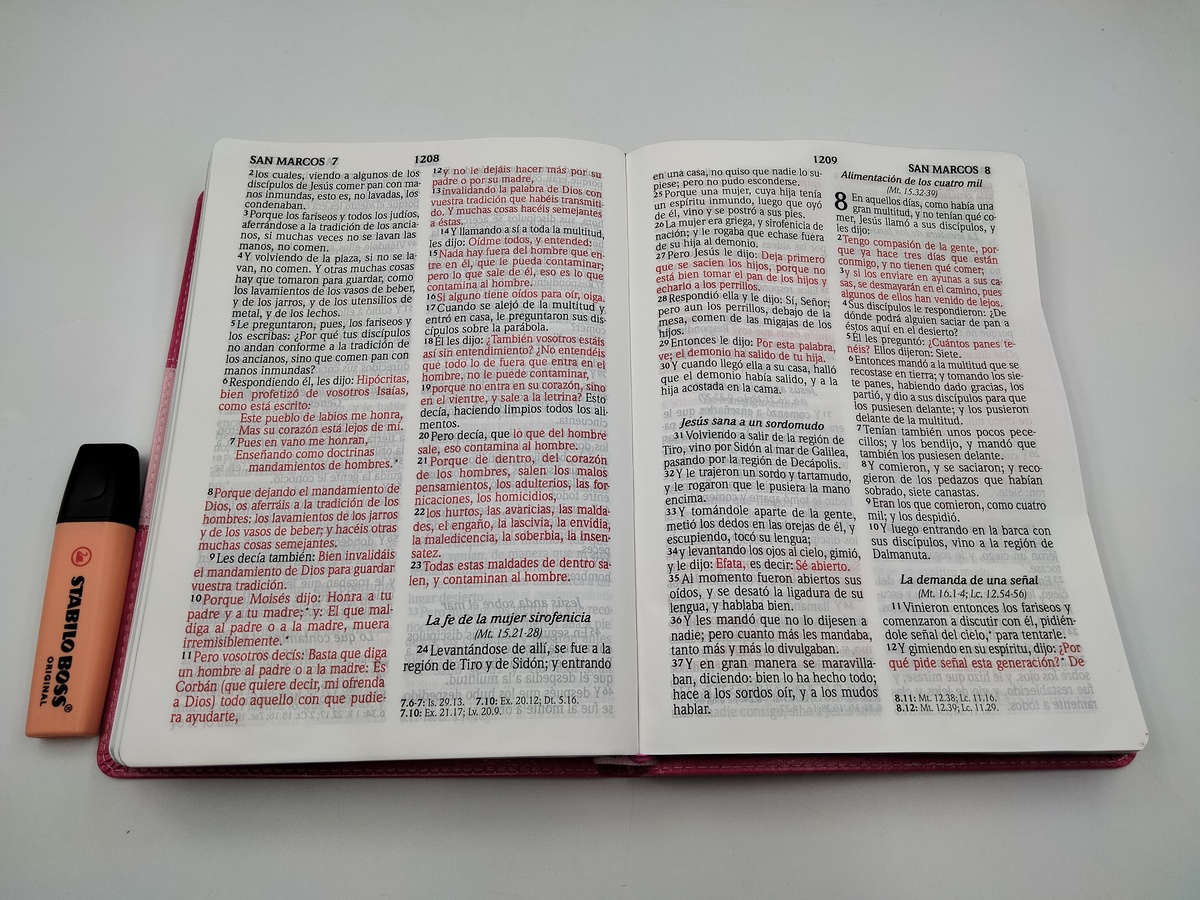 SAN MARCOS 7
1208
2 los cuales, viendo a algunos de los
discípulos de Jesús comer pan con ma-
nos inmundas, esto es, no lavadas, los
condenaban.
3 Porque los fariseos y todos los judíos,
aferrándose a la tradición de los ancia-
nos, si muchas veces no se lavan las
manos, no comen.
4 Y volviendo de la plaza, si no se la-
van, no comen. Y otras muchas cosas
hay que tomaron para guardar, como
los lavamientos de los vasos de beber,
y de los jarros, y de los utensilios de
metal, y de los lechos.
5 Le preguntaron, pues, los fariseos y
los escribas: ¿Por qué tus discípulos
no andan conforme a la tradición de
los ancianos, sino que comen pan con
manos inmundas?
6 Respondiendo él, les dijo: Hipócritas,
bien profetizó de vosotros Isaías,
como está escrito:
Este pueblo de labios me honra,
Mas su corazón está lejos de mí.
7 Pues en vano me honran,
Enseñando como doctrinas
mandamientos de hombres.*
8 Porque dejando el mandamiento de
Dios, os aferráis a la tradición de los
hombres: los lavamientos de los jarros
y de los vasos de beber; y hacéis otras
muchas cosas semejantes.
9 Les decía también: Bien invalidáis
el mandamiento de Dios para guardar
vuestra tradición.
10 Porque Moisés dijo: Honra a tu
padre y a tu madre;* y: El que mal-
diga al padre o a la madre, muera
irremisiblemente.*
11 Pero vosotros decís: Basta que diga
un hombre al padre o a la madre: Es
Corbán (que quiere decir, mi ofrenda
a Dios) todo aquello con que pudie-
ra ayudarte,
12 y no le dejáis hacer más por su
padre o por su madre,
13 invalidando la palabra de Dios con
vuestra tradición que habéis transmiti-
do. Y muchas cosas hacéis semejantes
a éstas.
14 Y llamando a sí a toda la multitud,
les dijo: Oídme todos, y entended:
15 Nada hay fuera del hombre que en-
tre en él, que le pueda contaminar;
pero lo que sale de él, eso es lo que
contamina al hombre.
16 Si alguno tiene oídos para oír, oiga.
17 Cuando se alejó de la multitud y
entró en casa, le preguntaron sus dis-
cípulos sobre la parábola.
18 Él les dijo: ¿También vosotros estáis
así sin entendimiento? ¿No entendéis
que todo lo de fuera que entra en el
hombre, no le puede contaminar,
19 porque no entra en su corazón, sino
en el vientre, y sale a la letrina? Esto
decía, haciendo limpios todos los ali-
mentos.
20 Pero decía, que lo que del hombre
sale, eso contamina al hombre.
21 Porque de dentro, del corazón
de los hombres, salen los malos
pensamientos, los adulterios, las for-
nicaciones, los homicidios,
22 los hurtos, las avaricias, las malda-
des, el engaño, la lascivia, la envidia,
la maledicencia, la soberbia, la insen-
satez.
23 Todas estas maldades de dentro sa-
len, y contaminan al hombre.
La fe de la mujer sirofenicia
(Mt. 15.21-28)
24 Levantándose de allí, se fue a la
región de Tiro y de Sidón; y entrando
7.6-7: Is. 29.13. 7.10: Ex. 20.12; Dt. 5.16.
7.10: Ex. 21.17; Lv. 20.9.
1209
SAN MARCOS 8
en una casa, no quiso que nadie lo su-
piese; pero no pudo esconderse.
25 Porque una mujer, cuya hija tenía
un espíritu inmundo, luego que oyó
de él, vino y se postró a sus pies.
26 La mujer era griega, y sirofenicia de
nación; y le rogaba que echase fuera
de su hija al demonio.
27 Pero Jesús le dijo: Deja primero
que se sacien los hijos, porque no
está bien tomar el pan de los hijos y
echarlo a los perrillos.
28 Respondió ella y le dijo: Sí, Señor;
pero aun los perrillos, debajo de la
mesa, comen de las migajas de los
hijos.
29 Entonces le dijo: Por esta palabra,
ve; el demonio ha salido de tu hija.
30 Y cuando llegó ella a su casa, halló
que el demonio había salido, y a la
hija acostada en la cama.
Jesús sana a un sordomudo
31 Volviendo a salir de la región de
Tiro, vino por Sidón al mar de Galilea,
pasando por la región de Decápolis.
32 Y le trajeron un sordo y tartamudo,
y le rogaron que le pusiera la mano
encima.
33 Y tomándole aparte de la gente,
metió los dedos en las orejas de él, y
escupiendo, tocó su lengua;
34 y levantando los ojos al cielo, gimió,
y le dijo: Efata, es decir: Sé abierto.
35 Al momento fueron abiertos sus
oídos, y se desató la ligadura de su
lengua, y hablaba bien.
36 Y les mandó que no lo dijesen a
nadie; pero cuanto más les mandaba,
tanto más y más lo divulgaban.
37 Y en gran manera se maravilla-
ban, diciendo: bien lo ha hecho todo;
hace a los sordos oír, y a los mudos
hablar.
Alimentación de los cuatro mil
(Mt. 15.32-39)
8 En aquellos días, como había una
gran multitud, y no tenían qué co-
mer, Jesús llamó a sus discípulos, y
les dijo:
2 Tengo compasión de la gente, por-
que ya hace tres días que están
conmigo, y no tienen qué comer;
3 y si los enviare en ayunas a sus ca-
sas, se desmayarán en el camino, pues
algunos de ellos han venido de lejos.
4 Sus discípulos le respondieron: ¿De
dónde podrá alguien saciar de pan a
éstos aquí en el desierto?
5 Él les preguntó: ¿Cuántos panes te-
néis? Ellos dijeron: Siete.
6 Entonces mandó a la multitud que se
recostase en tierra; y tomando los sie-
te panes, habiendo dado gracias, los
partió, y dio a sus discípulos para que
los pusiesen delante; y los pusieron
delante de la multitud.
7 Tenían también unos pocos pece-
cillos; y los bendijo, y mandó que
también los pusiesen delante.
8 Y comieron, y se saciaron; y reco-
gieron de los pedazos que habían
sobrado, siete canastas.
9 Eran los que comieron, como cuatro
mil; y los despidió.
10 Y luego entrando en la barca con
sus discípulos, vino a la región de
Dalmanuta.
La demanda de una señal
(Mt. 16.1-4; Lc. 12.54-56)
11 Vinieron entonces los fariseos y
comenzaron a discutir con él, pidién-
dole señal del cielo,* para tentarle.
12 Y gimiendo en su espíritu, dijo: ¿Por
qué pide señal esta generación?* De
8.11: Mt. 12.38; Lc. 11.16.
8.12: Mt. 12.39; Lc. 11.29.
STABILO BOSS®
ORIGINAL